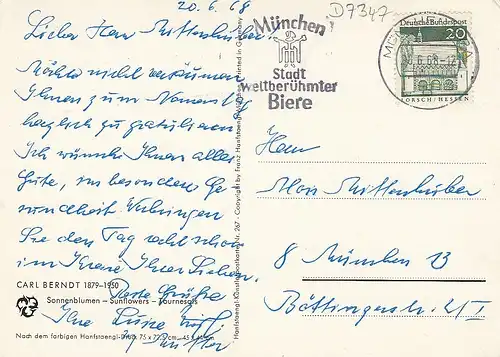 20.6.68
D7347
Lieber Herr Mittenhuber!
Möchte nicht versäumen
Ihnen zum Namenstag
herzlich zu gratulieren
Ich wünsche Ihnen alles
Gute, im besonderen Ge
sundheit. Verbringen
Sie den Tag recht schön
im Kreise Ihrer Lieben.
Beste Grüße
Ihre Luise
CARL BERNDT 1879–1950
Sonnenblumen – Sunflowers – Tournesols
Nach dem farbigen Hanfstaengl-Druck 75 x
Printed in Germany
Copyright by Franz Hanfstaengl
Hanfstaengl-Künstlerpostkarte Nr. 267
München
Stadt
weltberühmter
Biere
Deutsche Bundespost
20
LORSCH/HESSEN
Herrn
Mittenhuber
8 München 13